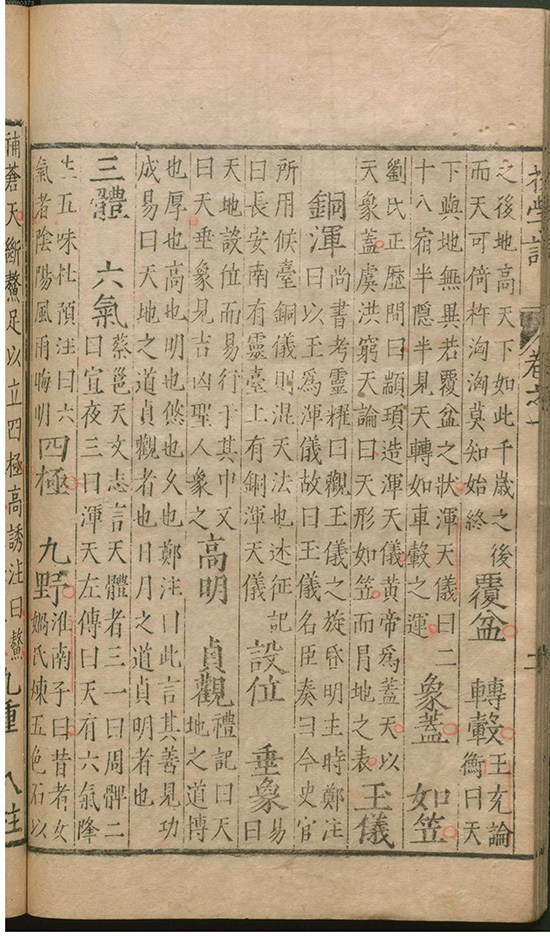 初學記 卷之一
之後地高天下如此千歲之後
而天可倚杵洶洶莫知始終
覆盆 轉轂
王充論
衡曰天
下與地無異若覆盆之狀渾天儀曰二
十八宿半隱半見天轉如車轂之運
象蓋 如笠
劉氏正歷問曰顓頊造渾天儀黃帝為蓋天以
天象蓋虞洪窮天論曰天形如笠而冒地之表
玉儀
銅渾
尚書考靈耀曰觀玉儀之旋昏明主時鄭注
曰以玉爲渾儀故曰玉儀名臣奏曰今史官
所用候臺銅儀則混天法也述征記
曰長安南有靈臺上有銅渾天儀
設位 垂象
易
曰
天地設位而易行于其中又
曰天垂象見吉凶聖人象之
高明 貞觀
禮記曰天
地之道博
也厚也高也明也悠也久也鄭注曰此言其善見功
成易曰天地之道貞觀者也日月之道貞明者也
三體 六氣
蔡邕天文志言天體者三一曰周髀二
曰宣夜三曰渾天左傳曰天有六氣降
生五味杜預注曰六
氣者陰陽風雨晦明
四極 九野
淮南子曰昔者女
媧氏煉五色石以
補蒼天斷鰲足以立四極高誘注曰鰲
九重 八柱